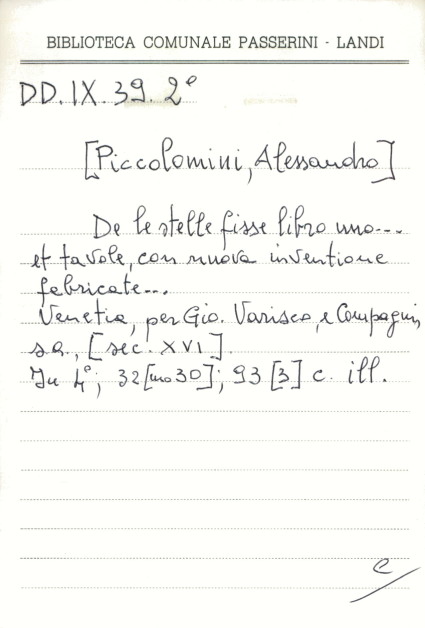 BIBLIOTECA COMUNALE PASSERINI - LANDI
DD.IX.39.2°
[Piccolomini, Alessandro]
De le stelle fisse libro uno...
et tavole, con nuova inventione
febricate...
Venetia, per Gio. Varisco, e Compagni,
s.a., [sec. XVI].
In 4°; 32 [ma 30]; 93 [3] c. ill.
e